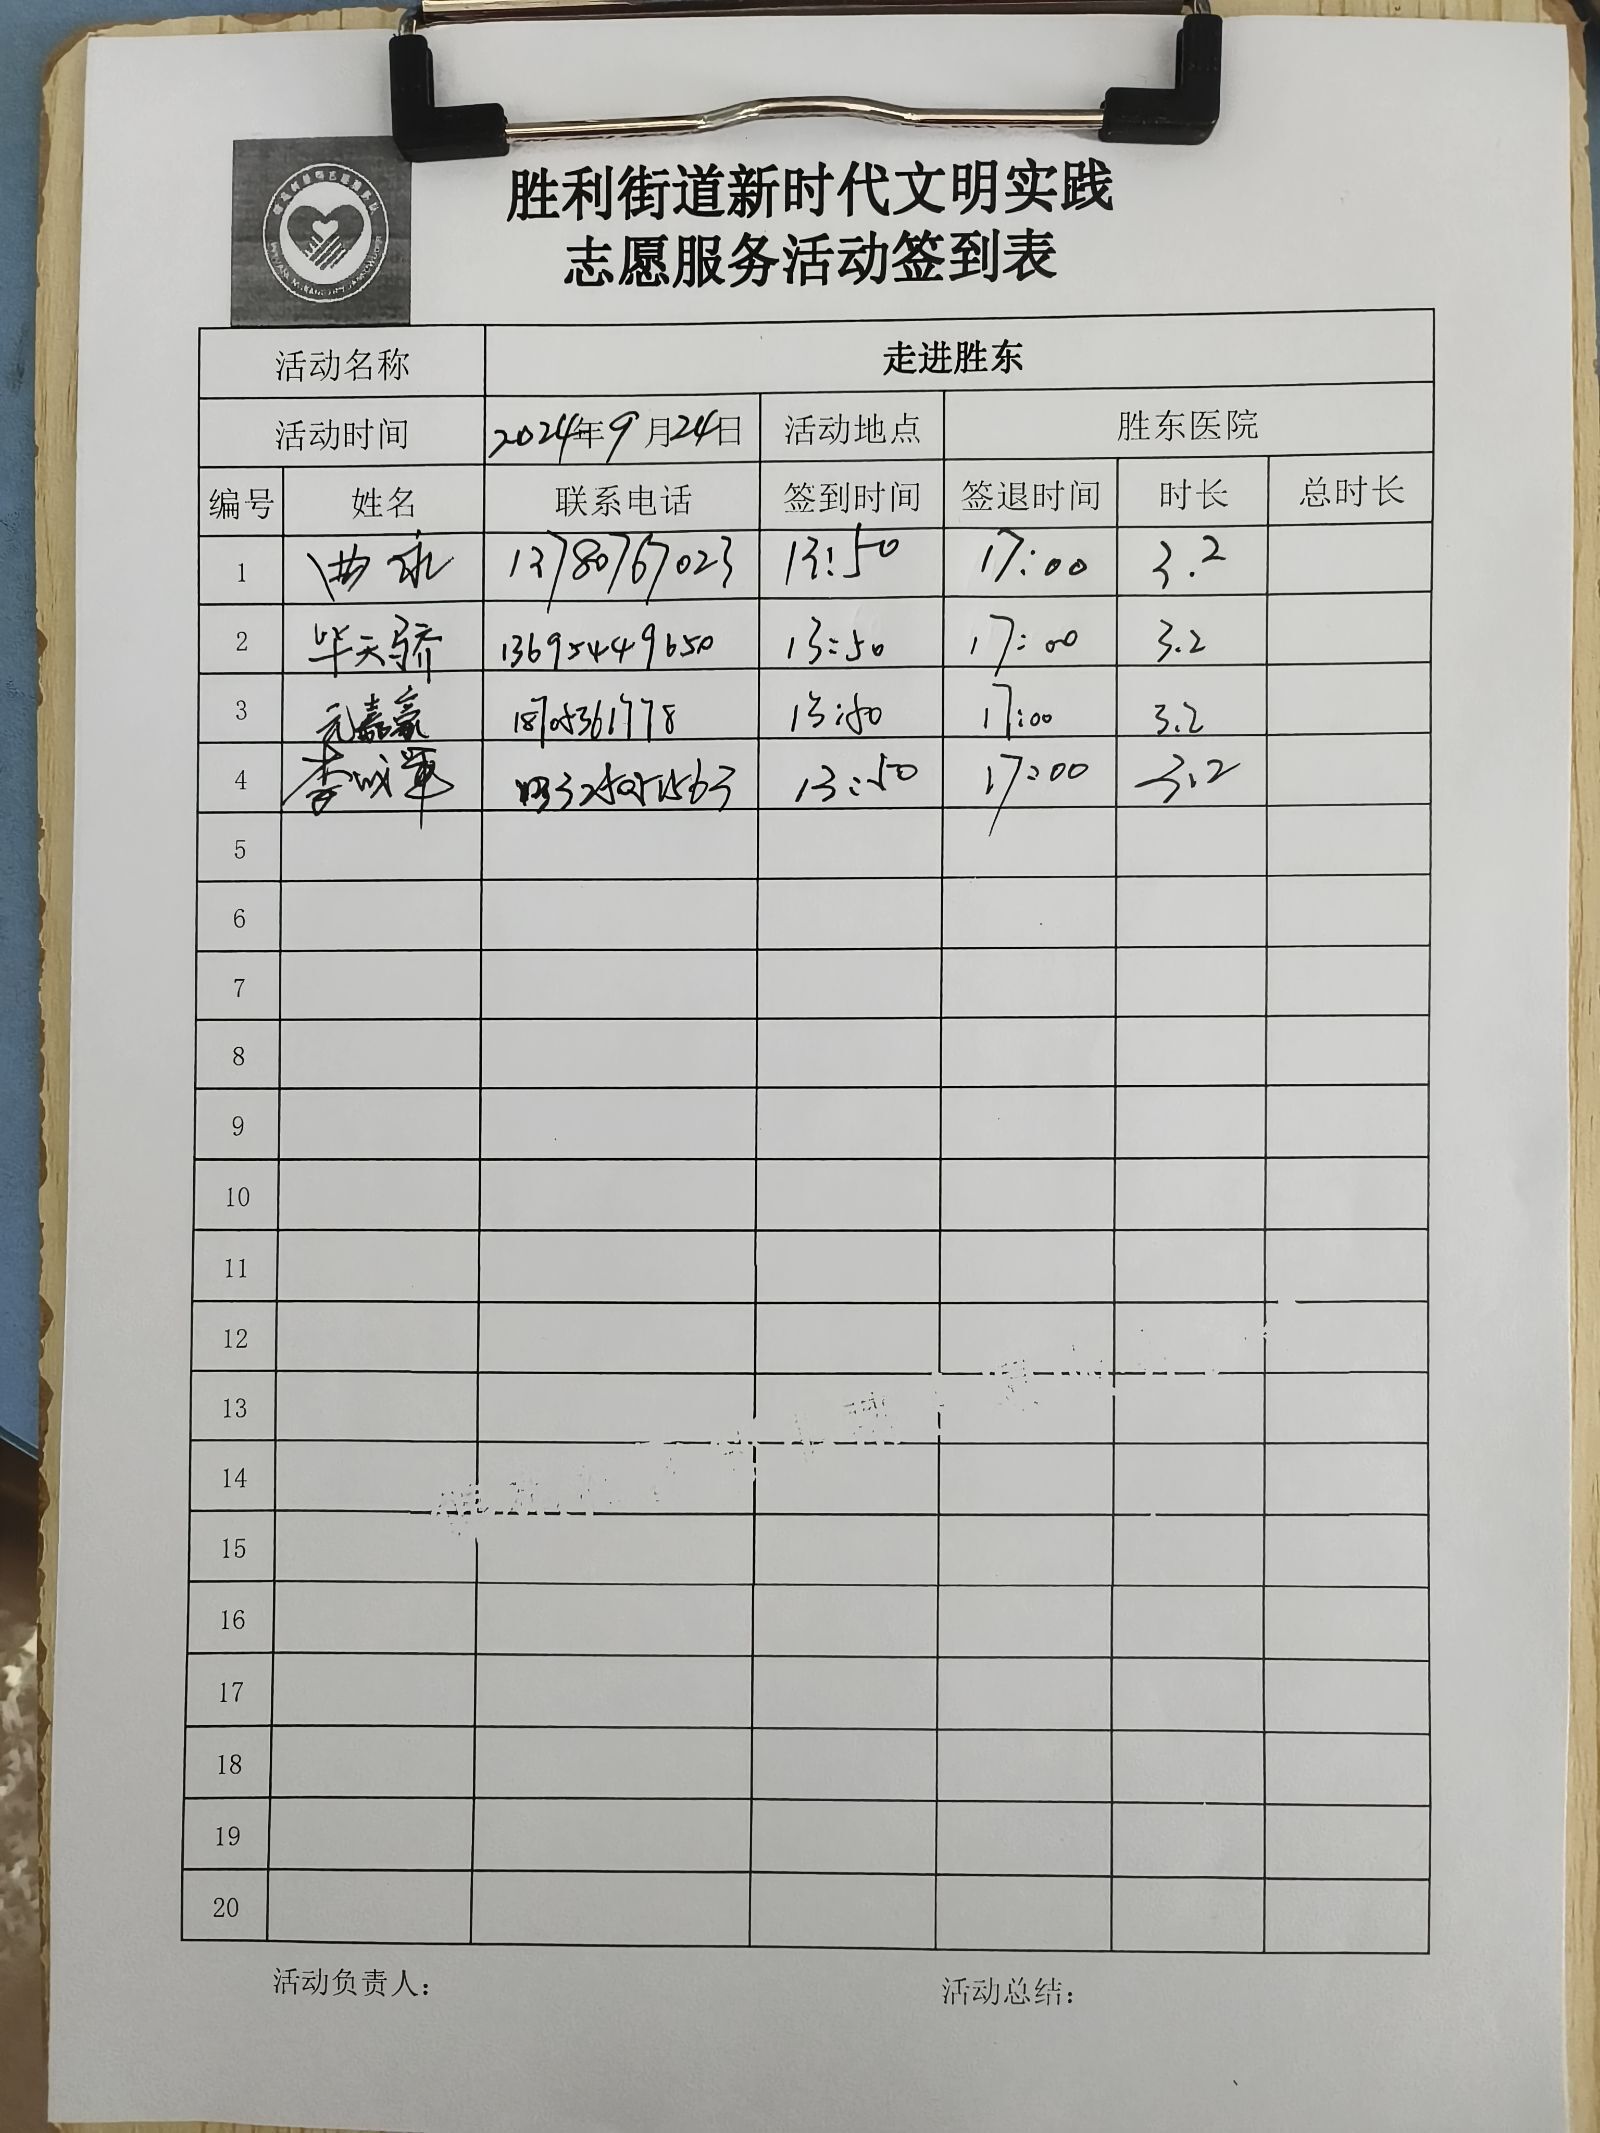 胜利街道新时代文明实践
志愿服务活动签到表
活动名称 走进胜东
活动时间 2024年9月24日 活动地点 胜东医院
编号 姓名 联系电话 签到时间 签退时间 时长 总时长
1 13780767023 13:50 17:00 3.2
2 毕天骄 13695449650 13:50 17:00 3.2
3 元嘉豪 13:50 17:00 3.2
4 李成军 13:50 17:00 3.2
5
6
7
8
9
10
11
12
13
14
15
16
17
18
19
20
活动负责人： 活动总结：